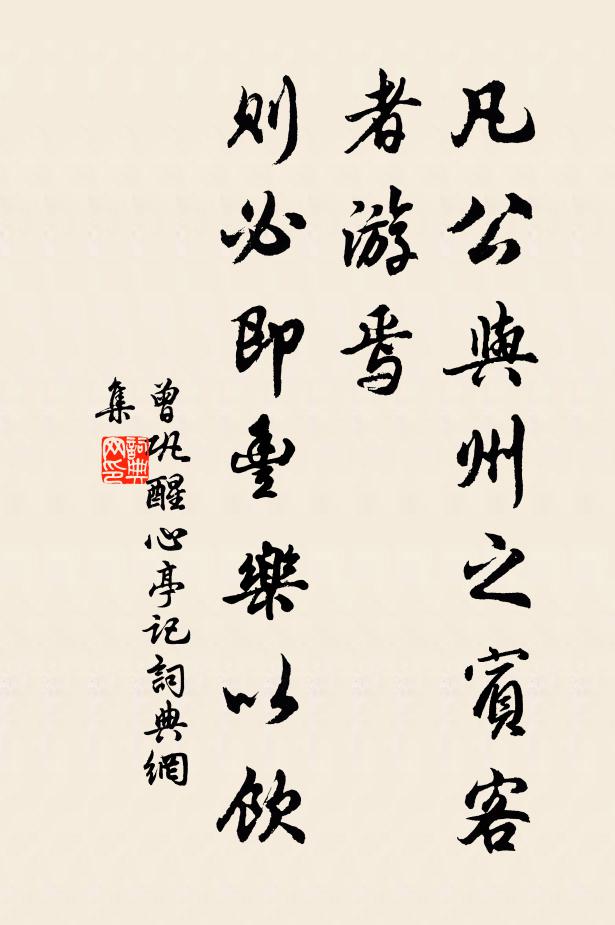 凡公與州之賓客
者游焉
則必即豐樂以飲
曾巩醒心亭記詞典網
集
詞典
网印